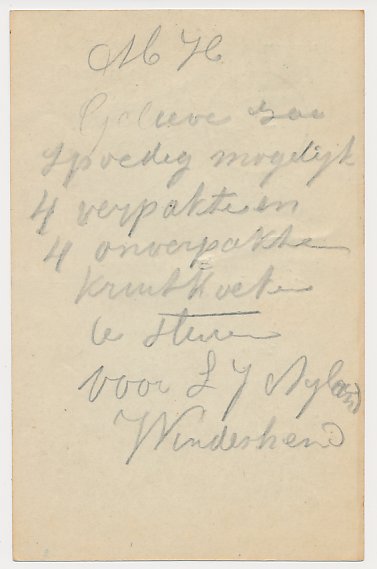 M H
Gelieve zoo
spoedig mogelijk
4 verpakte en
4 onverpakte
Kruitkoeke
te sturen
voor L J Nyland
Windesheim